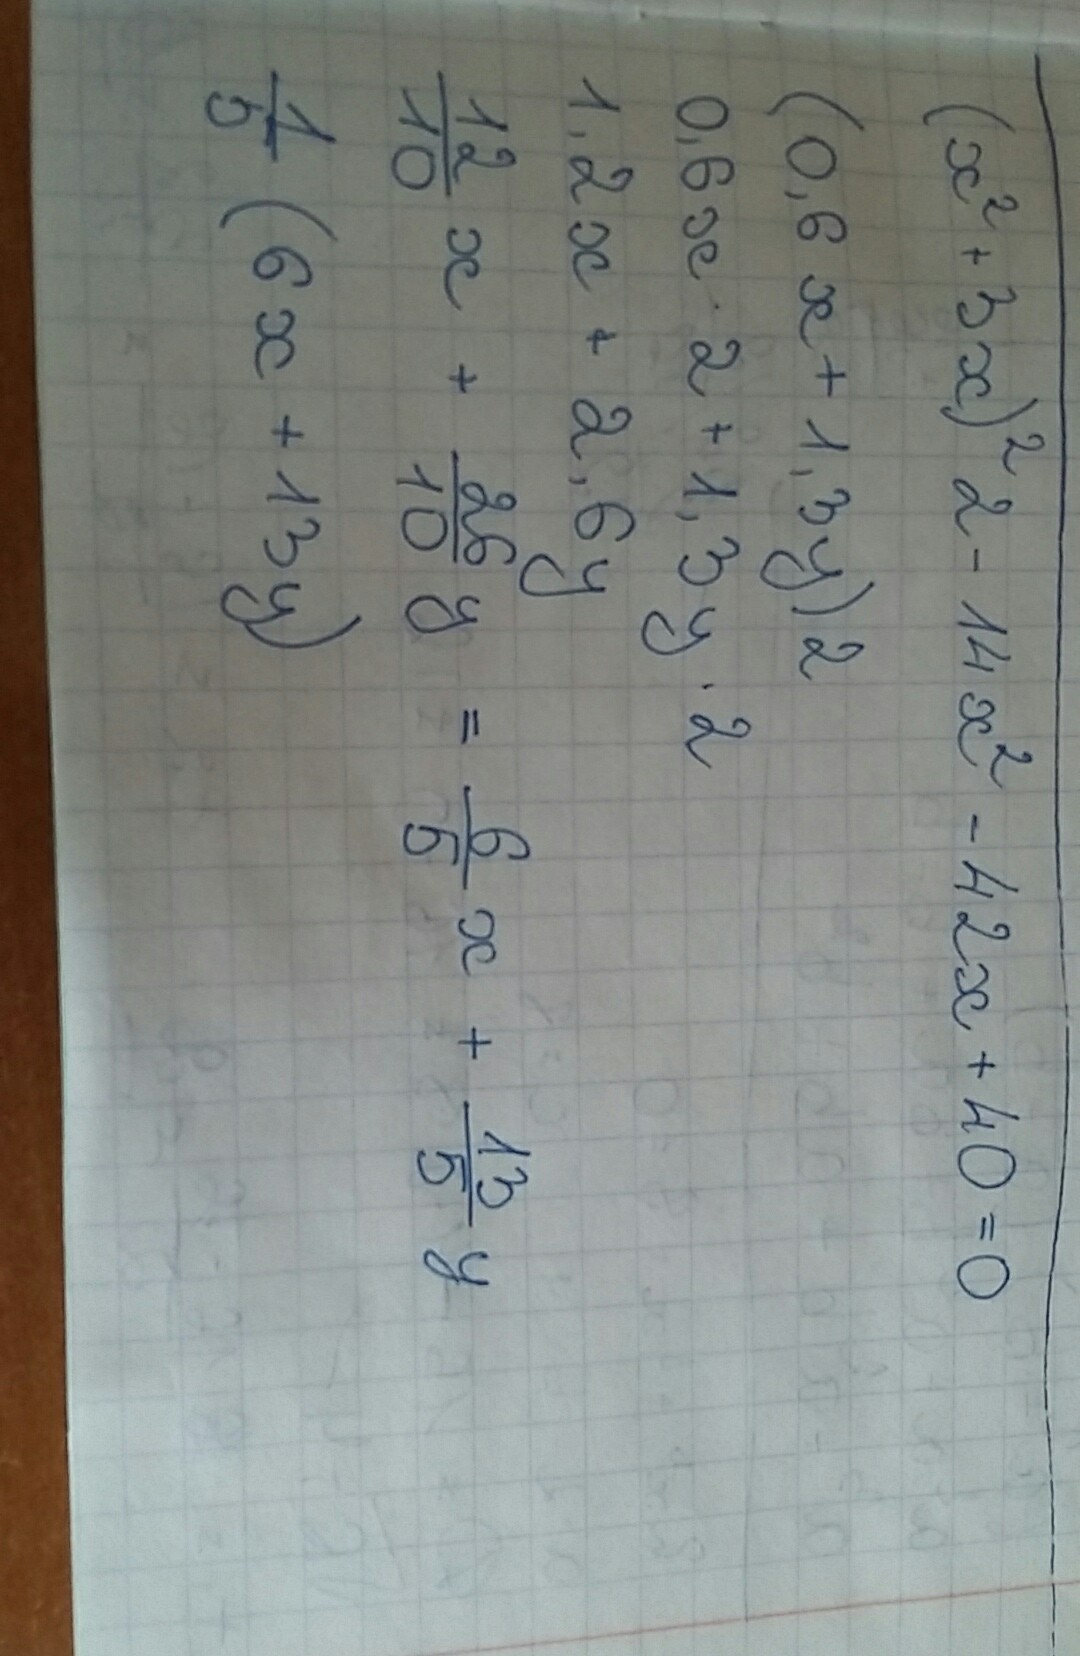 (x² + 3x)² 2 - 14x² - 42x + 40 = 0
(0,6x + 1,3y) 2
0,6x · 2 + 1,3y · 2
1,2x + 2,6y
12/10 x + 26/10 y = 6/5 x + 13/5 y
1/5 (6x + 13y)